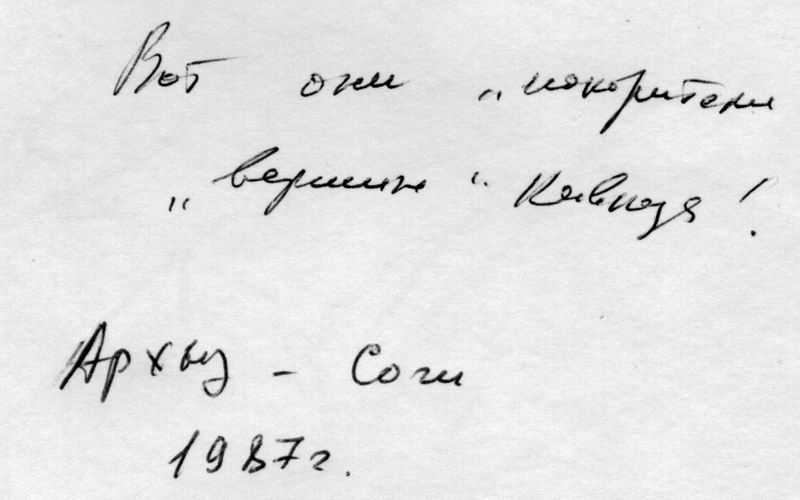 Вот они „покорители
„вершин“ Кавказа!
Архыз – Сочи
1987г.